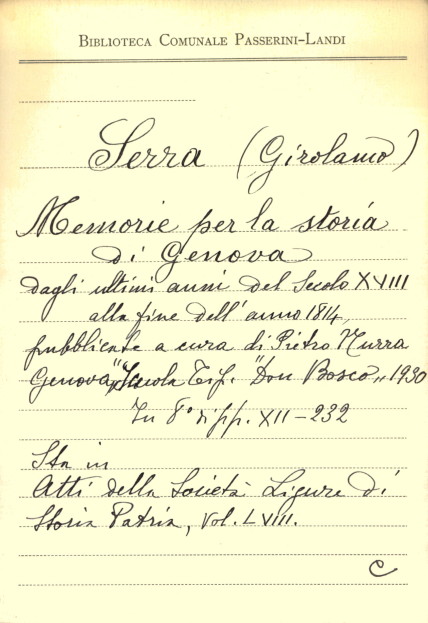 BIBLIOTECA COMUNALE PASSERINI-LANDI
Serra (Girolamo)
Memorie per la storia
di Genova
dagli ultimi anni del Secolo XVIII
alla fine dell'anno 1814,
pubblicate a cura di Pietro Nurra
Genova, Scuola Tip. "Don Bosco" 1930
In 8° di pp. XII-232
Sta in
Atti della Società Ligure di
Storia Patria, Vol. LVIII.
C